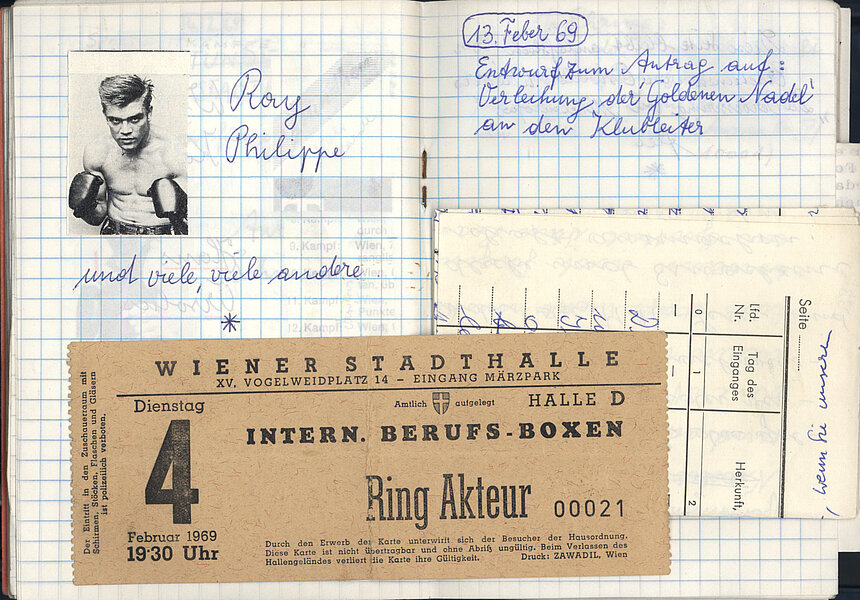 Ray
Philippe
und viele, viele andere
*
13. Feber 69
Entwurf zum Antrag auf:
Verleihung der 'Goldenen Nadel'
an den Klubleiter
*
WIENER STADTHALLE
XV. VOGELWEIDPLATZ 14 – EINGANG MÄRZPARK
Dienstag
4
Februar 1969
19·30 Uhr
Amtlich aufgelegt
HALLE D
INTERN. BERUFS-BOXEN
Ring Akteur 00021
Durch den Erwerb der Karte unterwirft sich der Besucher der Hausordnung.
Diese Karte ist nicht übertragbar und ohne Abriß ungültig. Beim Verlassen des
Hallengeländes verliert die Karte ihre Gültigkeit. Druck: ZAWADIL, Wien
Der Eintritt in den Zuschauerraum mit
Schirmen, Stöcken, Flaschen und Gläsern
ist polizeilich verboten.
Seite
Lfd.
Nr.
Tag des
Einganges
Herkunft,
0
1
2
wenn Sie unsere
9. Kampf:
12. Kampf: